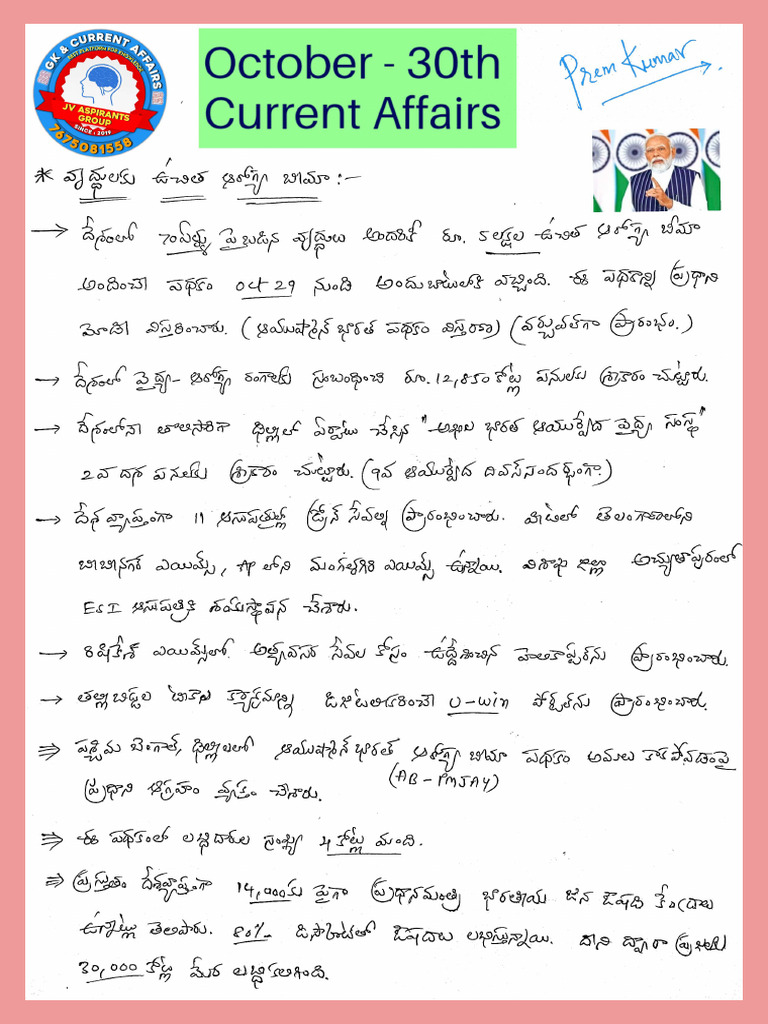 GK & CURRENT AFFAIRS
BEST PLATFORM FOR KNOWLEDGE
JV ASPIRANTS
GROUP
SINCE : 2019
7675081558
October - 30th
Current Affairs
Prem Kumar
* వృద్ధులకు ఉచిత ఆరోగ్య బీమా :-
→ దేశంలో 70ఏళ్ళు పైబడిన వృద్ధులు అందరికీ రూ. 5 లక్షల ఉచిత ఆరోగ్య బీమా
అందించే పథకం Oct 29 నుండి అందుబాటులోకి వచ్చింది. ఈ పథకాన్ని ప్రధాని
మోదీ విస్తరించారు. (ఆయుష్మాన్ భారత పథకం విస్తరణ) (వర్చువల్‌గా ప్రారంభం.)
→ దేశంలో వైద్య - ఆరోగ్య రంగాలకు సంబంధించి రూ. 12,850 కోట్ల పనులకు శ్రీకారం చుట్టారు.
→ దేశంలోనే తొలిసారిగా ఢిల్లీలో ఏర్పాటు చేసిన "అఖిల భారత ఆయుర్వేద వైద్య సంస్థ"
2వ దశ పనులకు శ్రీకారం చుట్టారు. (9వ ఆయుర్వేద దివస్ సందర్భంగా)
→ దేశ వ్యాప్తంగా 11 ఆసుపత్రుల్లో డ్రోన్ సేవల్ని ప్రారంభించారు. వీటిలో తెలంగాణలోని
బీబీనగర్ ఎయిమ్స్, AP లోని మంగళగిరి ఎయిమ్స్ ఉన్నాయి. విశాఖ జిల్లా అచ్యుతాపురంలో
ESI ఆసుపత్రికి శంకుస్థాపన చేశారు.
→ రిషికేశ్ ఎయిమ్స్‌లో అత్యవసర సేవల కోసం ఉద్దేశించిన హెలికాప్టర్‌ను ప్రారంభించారు.
→ తల్లీబిడ్డల టీకాల కార్యక్రమాన్ని డిజిటలీకరించే U-win పోర్టల్‌ను ప్రారంభించారు.
⇒ పశ్చిమ బెంగాల్, ఢిల్లీలలో ఆయుష్మాన్ భారత్ ఆరోగ్య బీమా పథకం అమలు కాకపోవడంపై
(AB-PMJAY)
ప్రధాని ఆగ్రహం వ్యక్తం చేశారు.
⇒ ఈ పథకంలో లబ్ధిదారుల సంఖ్య 4 కోట్ల మంది.
⇒ ప్రస్తుతం దేశవ్యాప్తంగా 14,000కు పైగా ప్రధానమంత్రి భారతీయ జన ఔషధి కేంద్రాలు
ఉన్నట్లు తెలిపారు. 80% డిస్కౌంట్‌తో ఔషధాలు లభిస్తున్నాయి. దాని ద్వారా ప్రజలకు
30,000 కోట్ల మేర లబ్ధి కలిగింది.